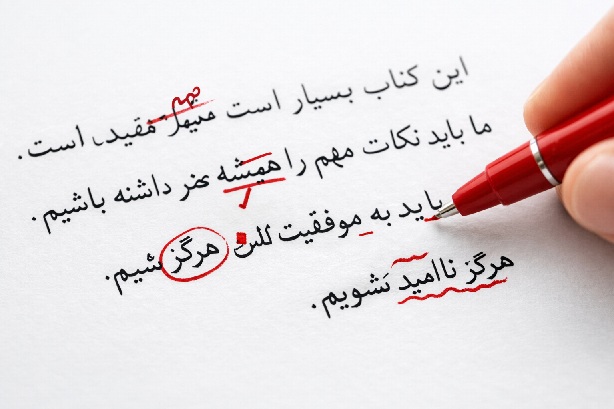 این کتاب بسیار است مفید، است.
ما باید نکات مهم را همیشه داشته باشیم.
باید به موفقیت هرگز شیم.
هرگز ناامید نشویم.